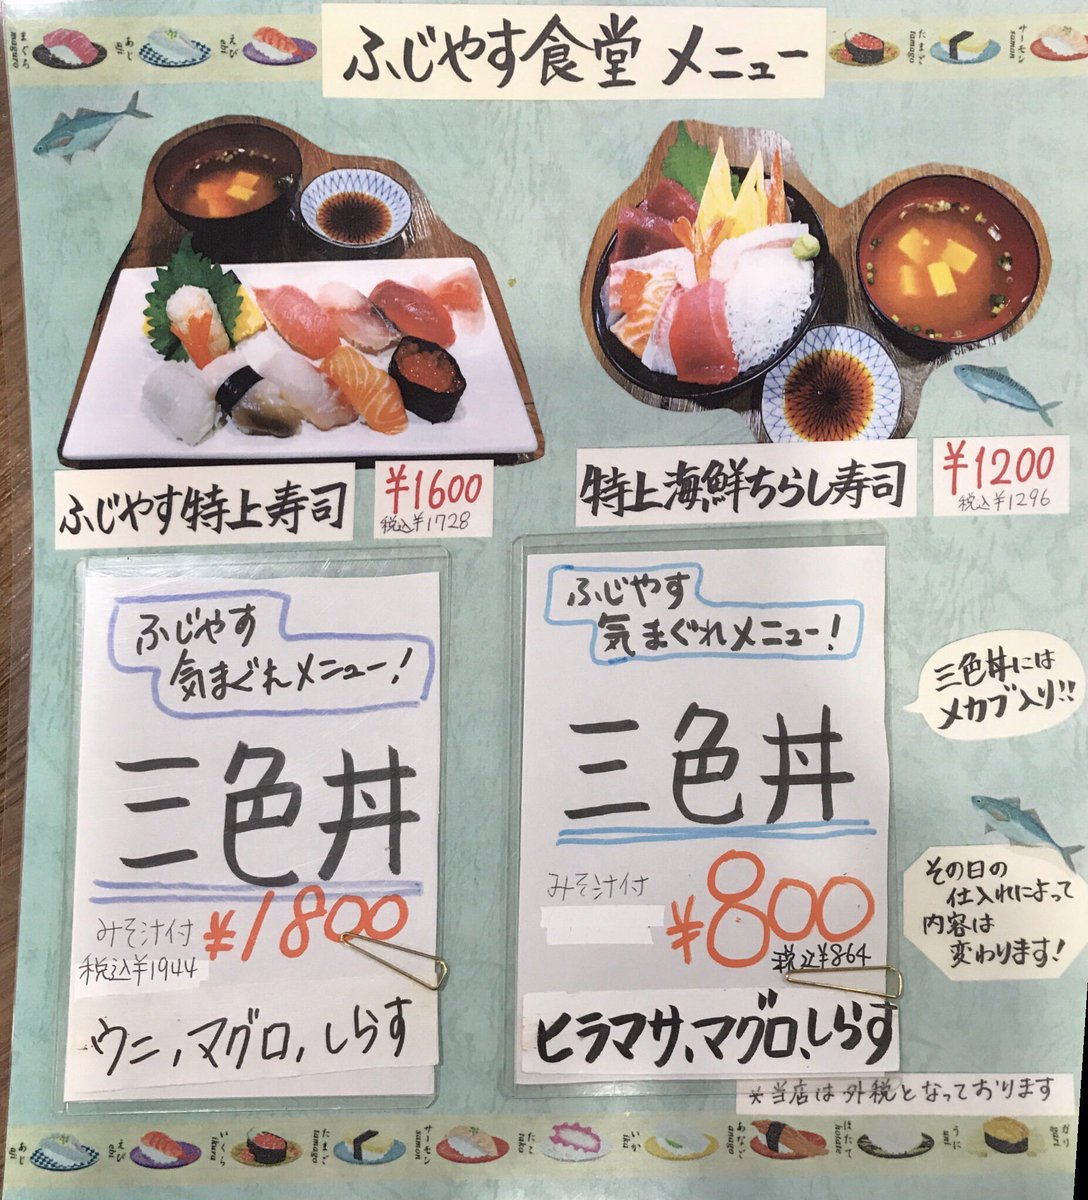 まぐろ
maguro
あじ
aji
えび
ebi
ふじやす食堂 メニュー
たまご
tamago
サーモン
samon
ふじやす特上寿司
¥1600
税込¥1728
特上海鮮ちらし寿司
¥1200
税込¥1296
ふじやす
気まぐれメニュー!
三色丼
みそ汁付
¥1800
税込¥1944
ウニ、マグロ、しらす
ふじやす
気まぐれメニュー!
三色丼
みそ汁付
¥800
税込¥864
ヒラマサ、マグロ、しらす
三色丼には
メカブ入り!!
その日の
仕入れによって
内容は
変わります!
*当店は外税となっております
あじ
aji
えび
ebi
いくら
ikura
たまご
tamago
サーモン
samon
たこ
tako
いか
ika
あなご
anago
ほたて
hotate
うに
uni
ガリ
gari